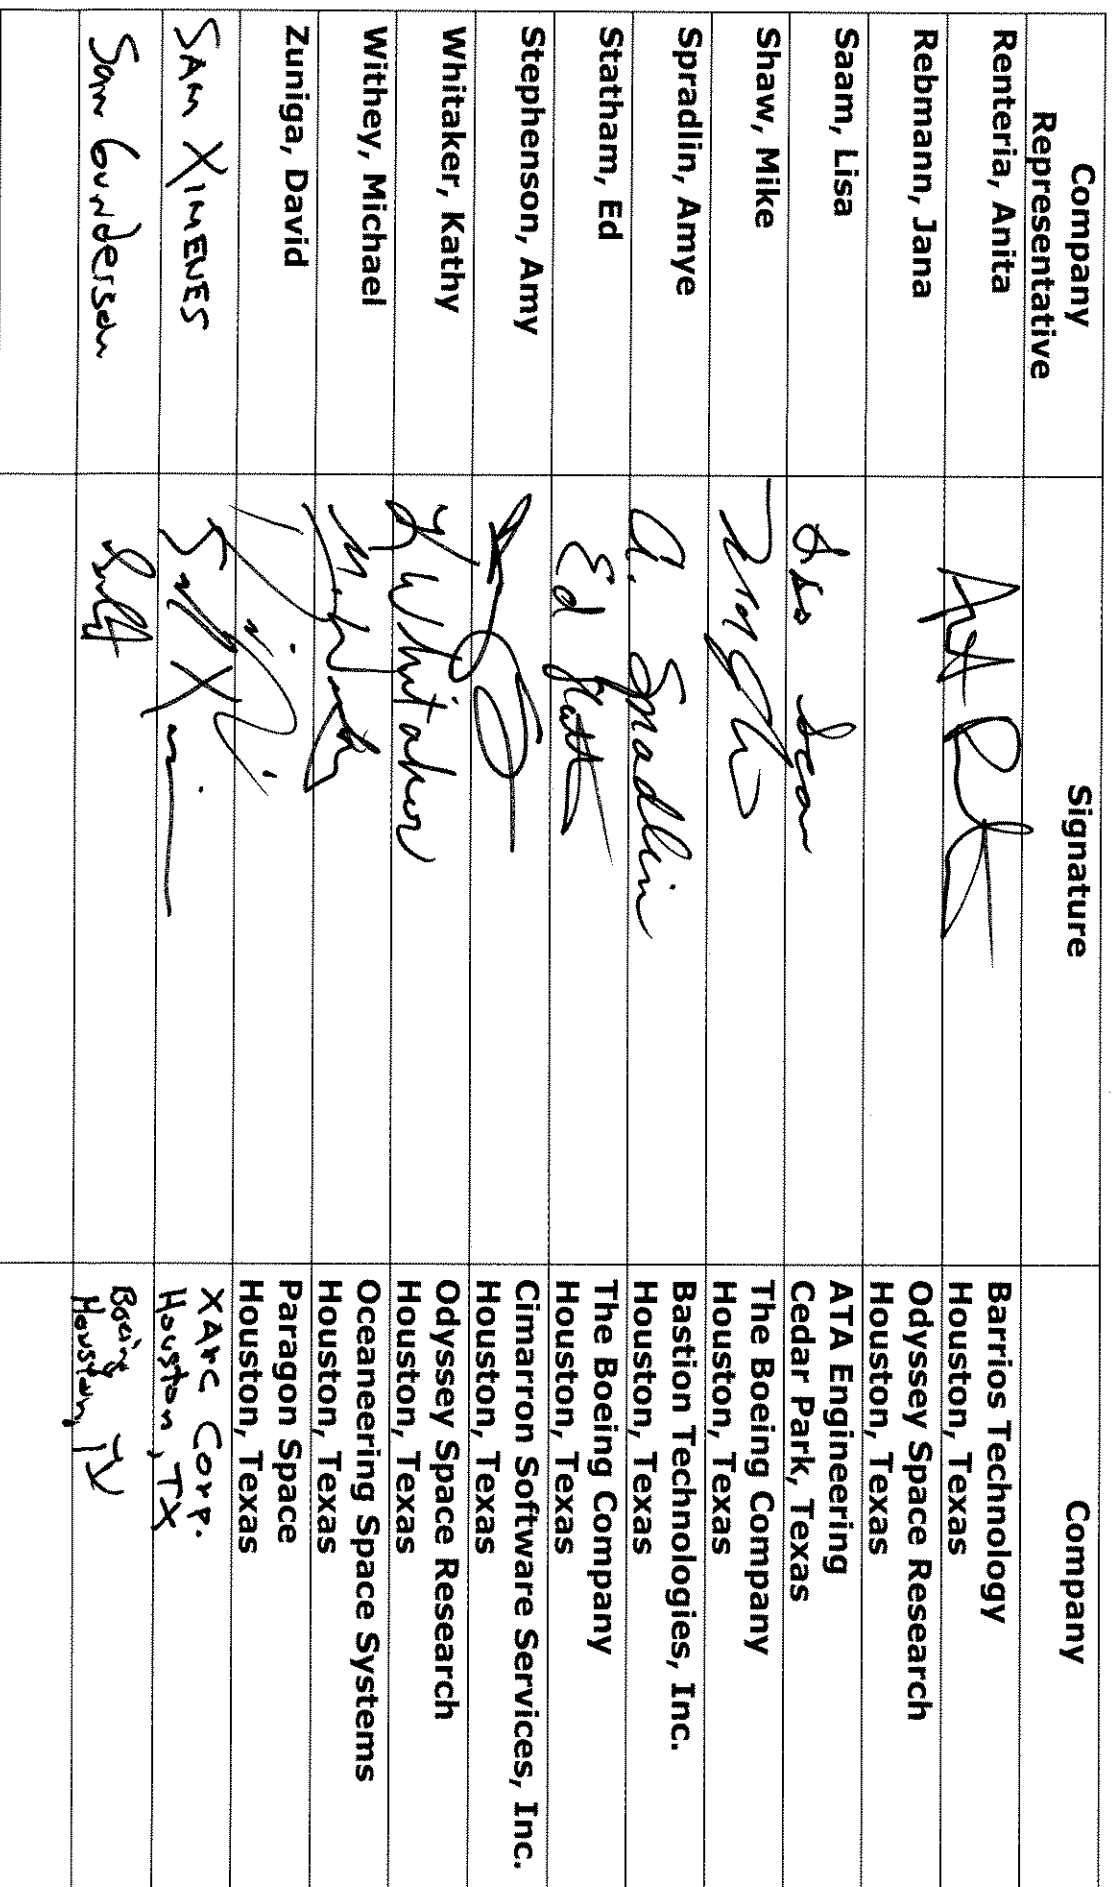 Company Representative Signature Company
Renteria, Anita Barrios Technology
Houston, Texas
Rebmann, Jana Odyssey Space Research
Houston, Texas
Saam, Lisa ATA Engineering
Cedar Park, Texas
Shaw, Mike The Boeing Company
Houston, Texas
Spradlin, Amye A. Spradlin Bastion Technologies, Inc.
Houston, Texas
Statham, Ed Ed The Boeing Company
Houston, Texas
Stephenson, Amy Cimarron Software Services, Inc.
Houston, Texas
Whitaker, Kathy K Whitaker Odyssey Space Research
Houston, Texas
Withey, Michael Oceaneering Space Systems
Houston, Texas
Zuniga, David Paragon Space
Houston, Texas
SAM XIMENES XArc Corp.
Houston, TX
Sam Gunderson Boeing
Houston, TX